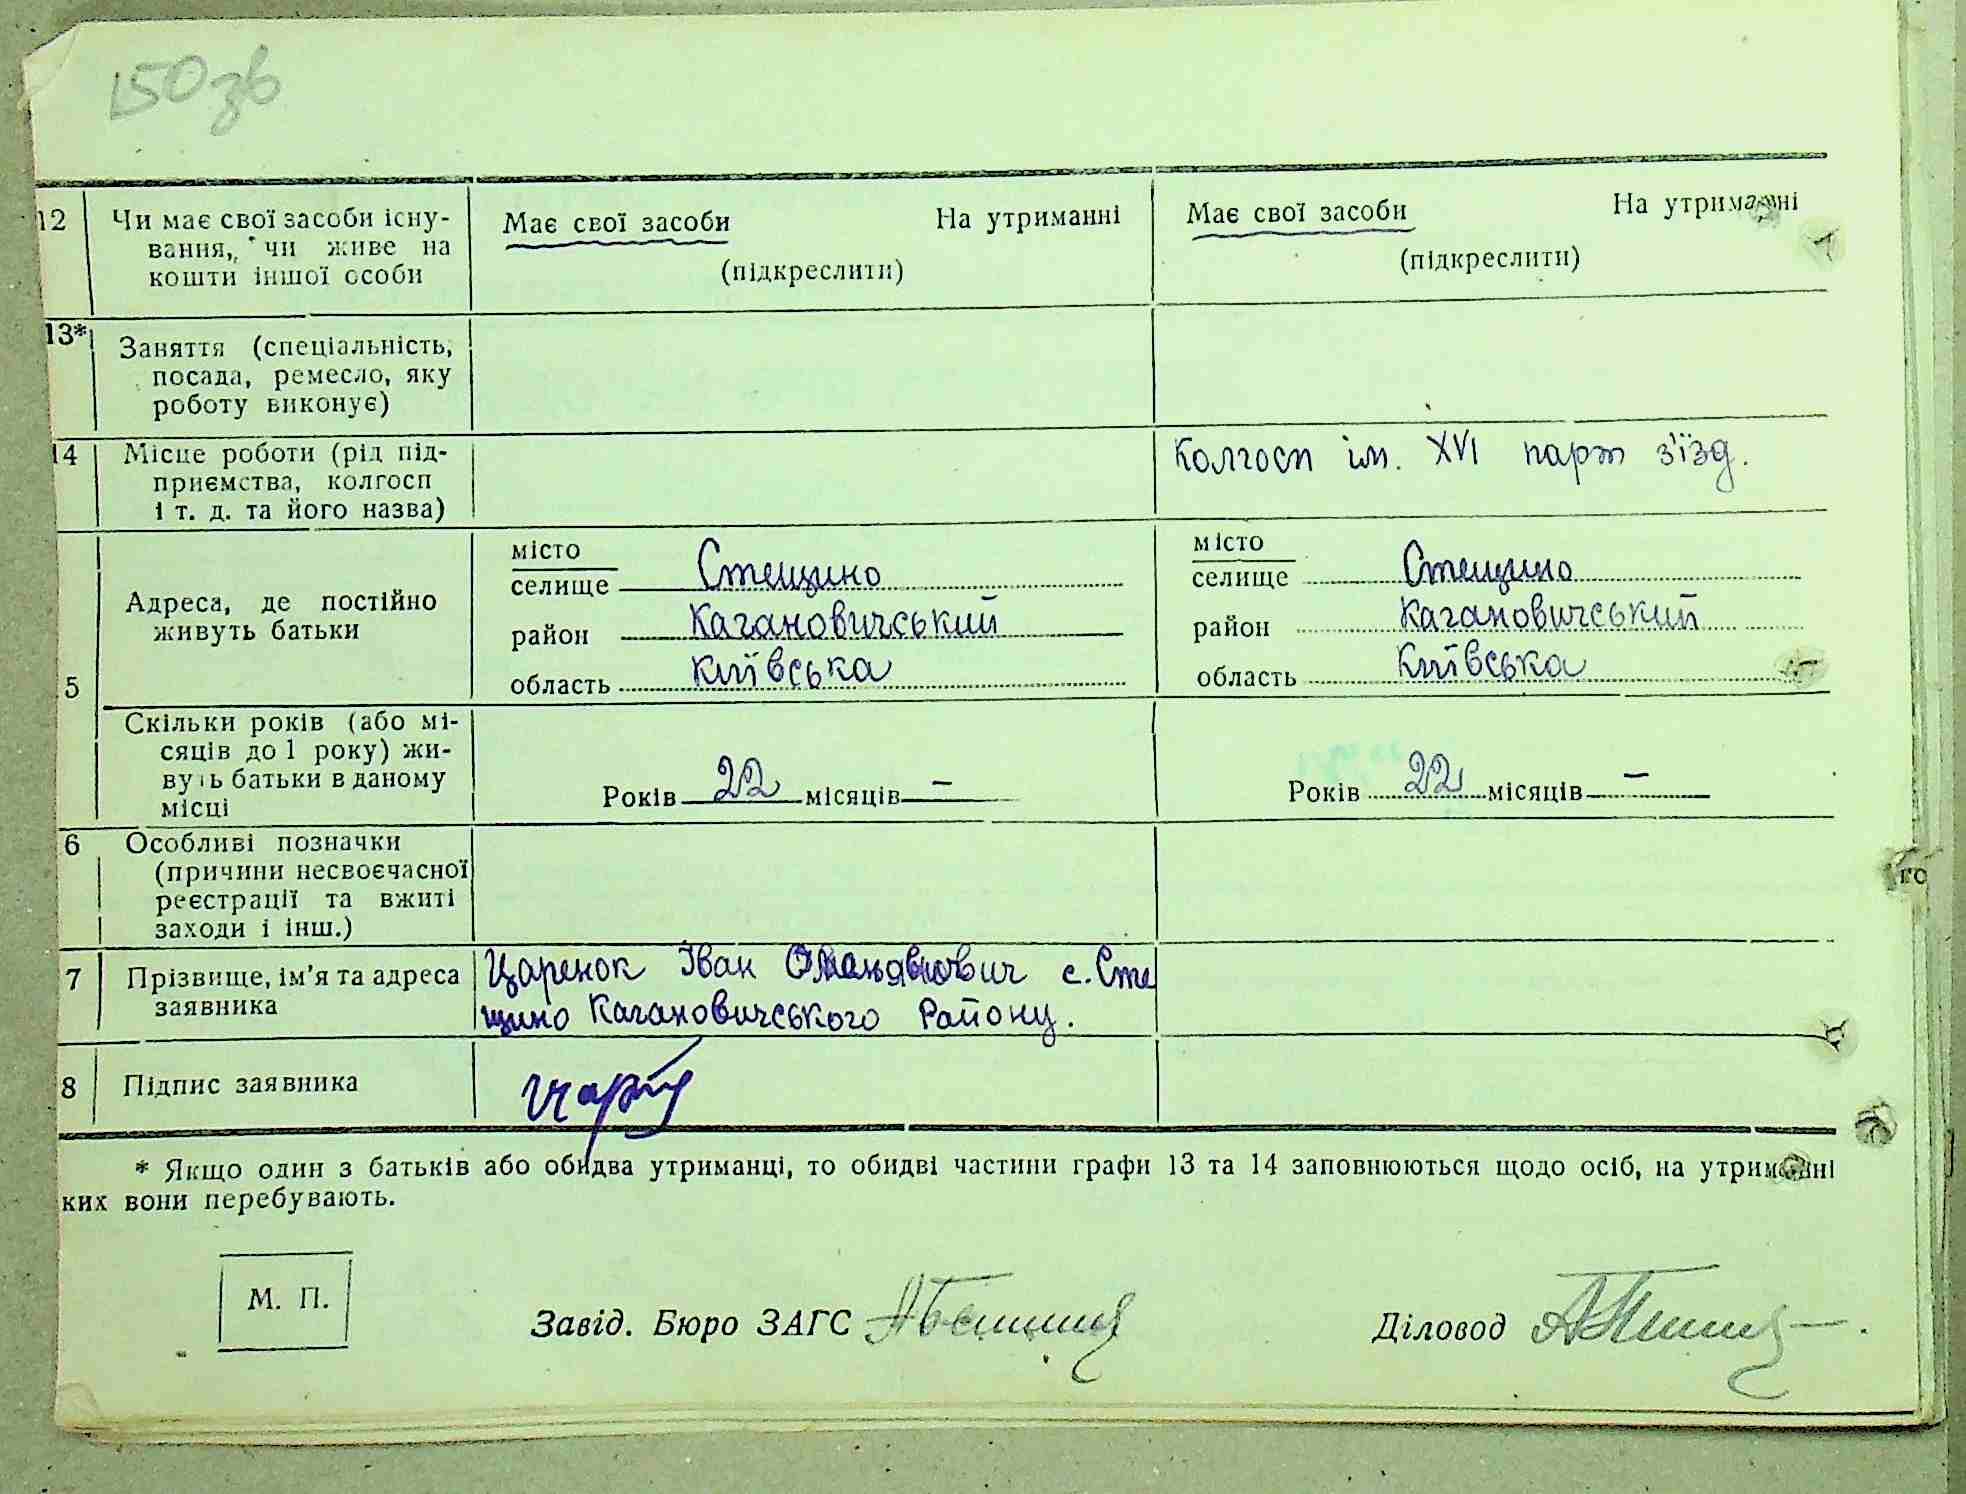 150зв
12 Чи має свої засоби існу- Має свої засоби На утриманні Має свої засоби На утриманні
вання, чи живе на
кошти іншої особи (підкреслити) (підкреслити)
13* Заняття (спеціальність,
посада, ремесло, яку
роботу виконує)
14 Місце роботи (рід під- Колгосп ім. XVI парт з'їзд.
приємства, колгосп
і т. д. та його назва)
місто місто
селище Стещино селище Стещино
Адреса, де постійно
живуть батьки район Кагановичський район Кагановичський
5 область Київська область Київська
Скільки років (або мі-
сяців до 1 року) жи-
вуть батьки в даному
місці Років 22 місяців — Років 22 місяців —
6 Особливі позначки
(причини несвоєчасної
реєстрації та вжиті
заходи і інш.)
7 Прізвище, ім'я та адреса Царенок Іван с. Сте
заявника щино Кагановичського Району.
8 Підпис заявника
* Якщо один з батьків або обидва утриманці, то обидві частини графи 13 та 14 заповнюються щодо осіб, на утриманні
ких вони перебувають.
М. П.
Завід. Бюро ЗАГС Діловод